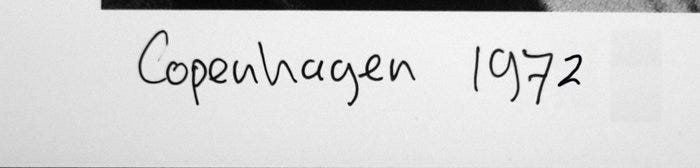 Copenhagen 1972